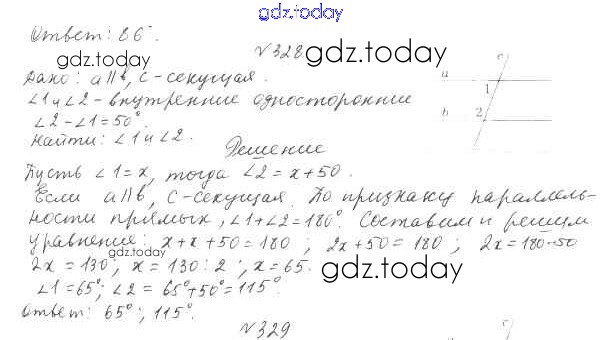 gdz.today
Ответ: 86°.
№328
gdz.today
Дано: a∥b, c-секущая.
∠1 и ∠2-внутренние односторонние
∠2-∠1=50°
Найти: ∠1 и ∠2.
c
a
1
b
2
Решение
Пусть ∠1=x, тогда ∠2=x+50.
Если a∥b, c-секущая. По признаку параллель-
ности прямых, ∠1+∠2=180°. Составим и решим
уравнение: x+x+50=180; 2x+50=180; 2x=180-50
2x=130; x=130:2; x=65.
∠1=65°; ∠2=65°+50°=115°.
Ответ: 65°; 115°.
gdz.today
gdz.today
gdz.today
№329